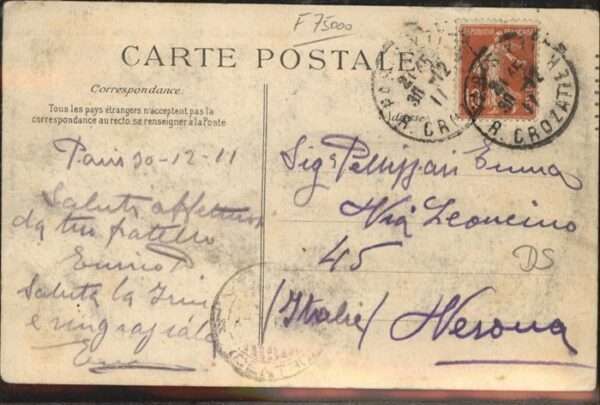 F 75000
CARTE POSTALE
Correspondance
Tous les pays étrangers n'acceptent pas la
correspondance au recto, se renseigner à la Poste
Paris 30-12-11
Saluti affettuosi
da tuo fratello
Enrico
Saluta la
e ringraziala
Adresse
Sig.a Pellizzari Emma
Via Leoncino
45
(Italie) Verona
DS
PARIS
30 -12
11
R. CROZATIER
R. CROZATIER